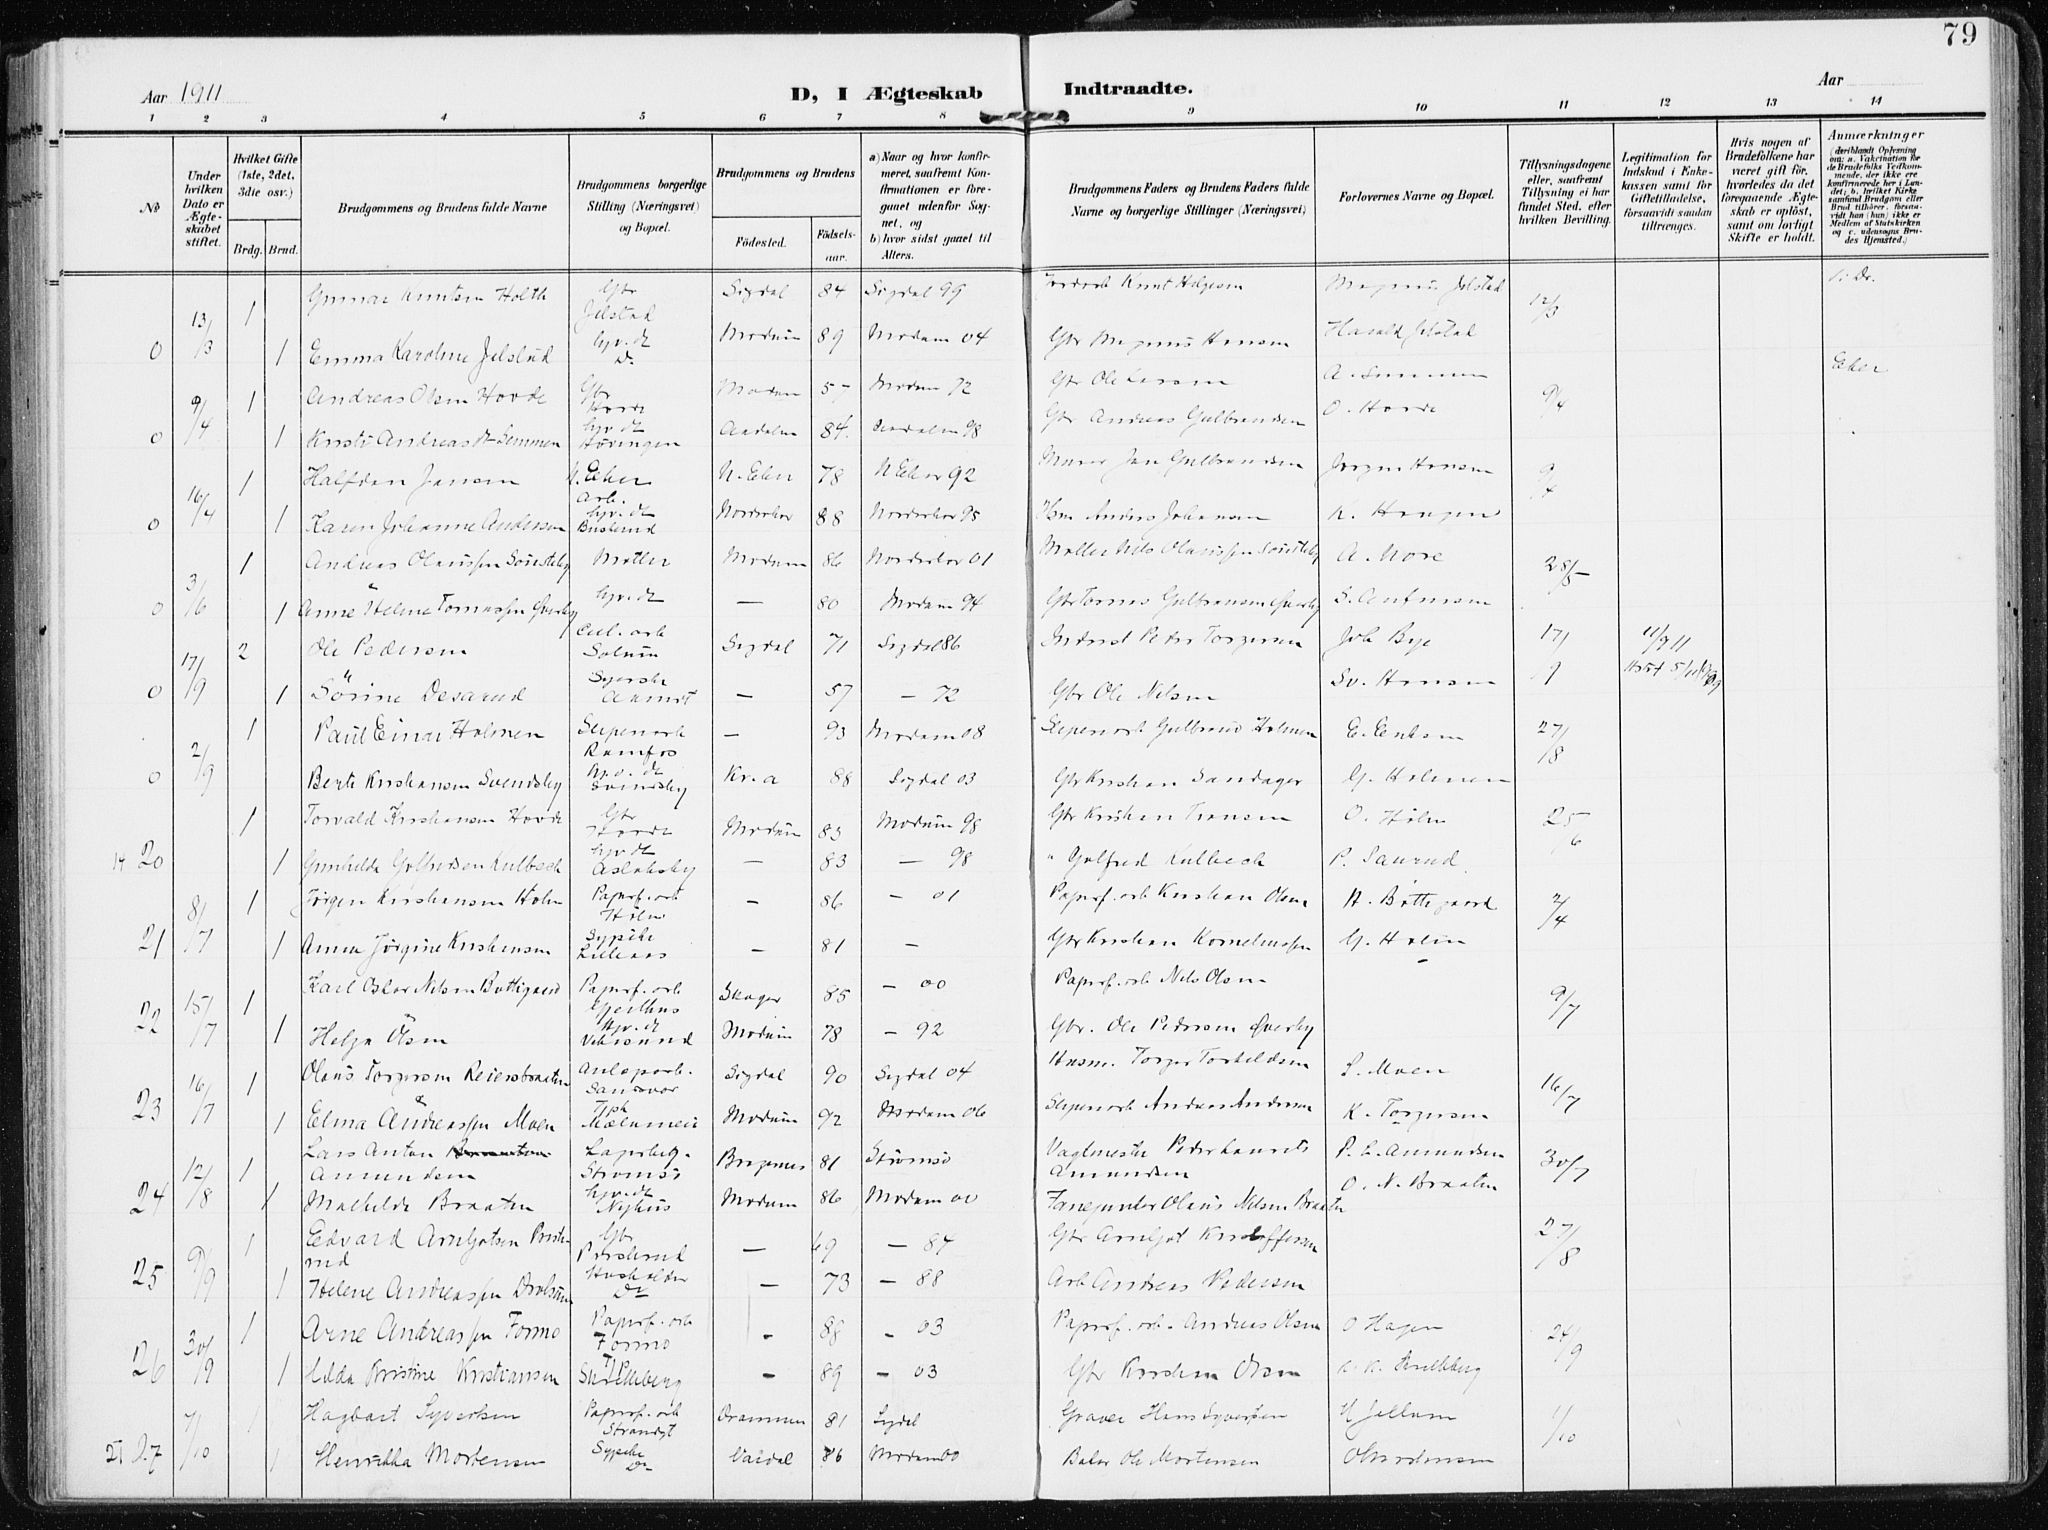 79
Aar 1911 D, I Ægteskab Indtraadte. Aar
1 2 3 4 5 6 7 8 9 10 11 12 13 14
№
Under hvilken Dato er Ægteskabet stiftet.
Hvilket Gifte (1ste, 2det, 3die osv.)
Brdg. Brud.
Brudgommens og Brudens fulde Navne
Brudgommens borgerlige Stilling (Næringsvei) og Bopæl.
Brudgommens og Brudens
Fødested. Fødselsaar.
a) Naar og hvor konfirmeret, saafremt Konfirmationen er foregaaet udenfor Sognet, og
b) hvor sidst gaaet til Alters.
Brudgommens Faders og Brudens Faders fulde Navne og borgerlige Stillinger (Næringsvei)
Forlovernes Navne og Bopæl.
Tillysningsdagene eller, saafremt Tillysning ei har fundet Sted, efter hvilken Bevilling.
Legitimation for Indskud i Enkekassen samt for Giftetilladelse, forsaavidt saadan tiltrænges.
Hvis nogen af Brudefolkene har været gift før, hvorledes da det foregaaende Ægteskab er opløst, samt om lovligt Skifte er holdt.
Anmærkninger
(deriblandt Oplysning om: a. Vakcination for de Brudefolks Vedkommende, der ikke ere konfirmerede her i Landet; b. hvilket Kirkesamfund Brudgom eller Brud tilhører, forsaavidt han (hun) ikke er Medlem af Statskirken og c. udensogns Brudes Hjemsted.)
13/3 1 Gunnar Knutsen Holth Gbr Jelstad Sigdal 84 Sigdal 99 Knut Helgesen Magnus Jelstad 12/3
0 1 Emma Karoline Jelstad hjv. dt Do Modum 89 Modum 04 Gbr Magnus Hansen Harald Jelstad
9/4 1 Andreas Olsen Hovde Gbr Hovde Modum 57 Modum 72 Gbr Ole Larsen A. Semmen 9/4 Eker
0 1 Kristi Andreasdt Semmen hjv. dt Aadalen 84 Aadalen 98 Gbr Andreas Gulbrandsen O. Hovde
16/4 1 Halfdan Jansen N. Eker arb. N. Eker 78 N Eker 92 Murer Jan Gulbrandsen Jørgen Hansen 9/4
0 1 Karen Johanne Andersen hjv. dt Buskerud Norderhov 88 Norderhov 95 Hsm Anders Johansen K. Haugen
3/6 1 Andreas Olaussen Sønsteby Møller Modum 86 Norderhov 01 Møller Nils Olaussen Sønsteby A. More 28/5
0 1 Anne Helene Tomassen Øverby hjv. dt — 80 Modum 94 Gbr Tomas Gulbransen Øverby
17/9 2 Ole Pedersen Cel. arb Solum Sigdal 71 Sigdal 86 Inderst Peder Torgersen Joh Bye 17/9 11/9 11
0 1 Sørine Desarud Syerske — 57 — 72 Gbr Ole Nilsen Sv. Hansen
2/9 1 Paul Einar Holmen Sliperiarb Ramfos — 93 Modum 08 Sliperiarb Gulbrand Holmen E. Eriksen 27/8
0 Berte Kristiansen Svendsby hjv. dt Svendsby Kr.a 88 Sigdal 03 Gbr Kristian Sandager G. Holmen
1 Torvald Kristiansen Hovde Gbr Hovde Modum 83 Modum 98 Gbr Kristian Fransen O. Holm 25/6
20 1 Gunhilda Golfredsen Kulbech hjv dt Aslaksby — 83 — 98 " Golfred Kulbech P. Saurud
8/7 1 Jørgen Kristiansen Holm Papirf. arb Holm — 86 — 01 Papirf. arb Kristian Olsen A. Bøttegaard 2/4
21 1 Anna Jørgine Kristiansen Sypike Lilleaas — 81 — Gbr Kristian Korneliussen G. Holm
15/7 1 Karl Oskar Nilsen Bøttegaard Papirf. arb Gjeithus Skoger 85 — 00 Papirf. arb Nils Olsen 9/7
22 1 Helga Olsen Hjv. dt Vikersund Modum 78 — 92 Gbr. Ole Pedersen Øverby
16/7 1 Olaus Torgersen Reiersbraaten Anlægsarb. Sandsvær Sigdal 90 Sigdal 04 Husm. Torger Torkildsen L. Moen 16/7
23 1 Elma Andreassen Moen Modum 92 Modum 06 Sliperiarb Andreas Andersen K. Torgersen
12/8 1 Lars Anton Amundsen Lagerbetj. Strømsø Bragernes 81 Strømsø Vagtmester Peder Laurits Amundsen P. L. Amundsen 30/7
24 1 Mathilde Braaten hjv. dt Nyhus Modum 86 Modum 00 Fanejunker Olaus Nilsen Braaten O. N. Braaten
9/9 1 Edvard Arnljotsen Prestrud Gbr — 69 — 84 Gbr Arnljot Kristoffersen 27/8
25 1 Helene Andreassen Drolsum Husholder Do — 73 — 88 Arb Andreas Pedersen
30/9 1 Arne Andreassen Formo Papirf. arb Formo — 88 — 03 Papirf. arb. Andreas Olsen O Hagen 24/9
26 1 Hilda Kristine Kristiansen Skrelleberg — 89 — 03 Gbr Kristian Olsen K. K. Skrelleberg
7/10 1 Hagbart Syvertsen Papirf. arb Strandgt Drammen 81 Sigdal Graver Hans Syvertsen H Jellum 1/10
27 1 Henrikka Mortensen Sypike Do 86 Modum 00 Baker Ole Mortensen O Mortensen